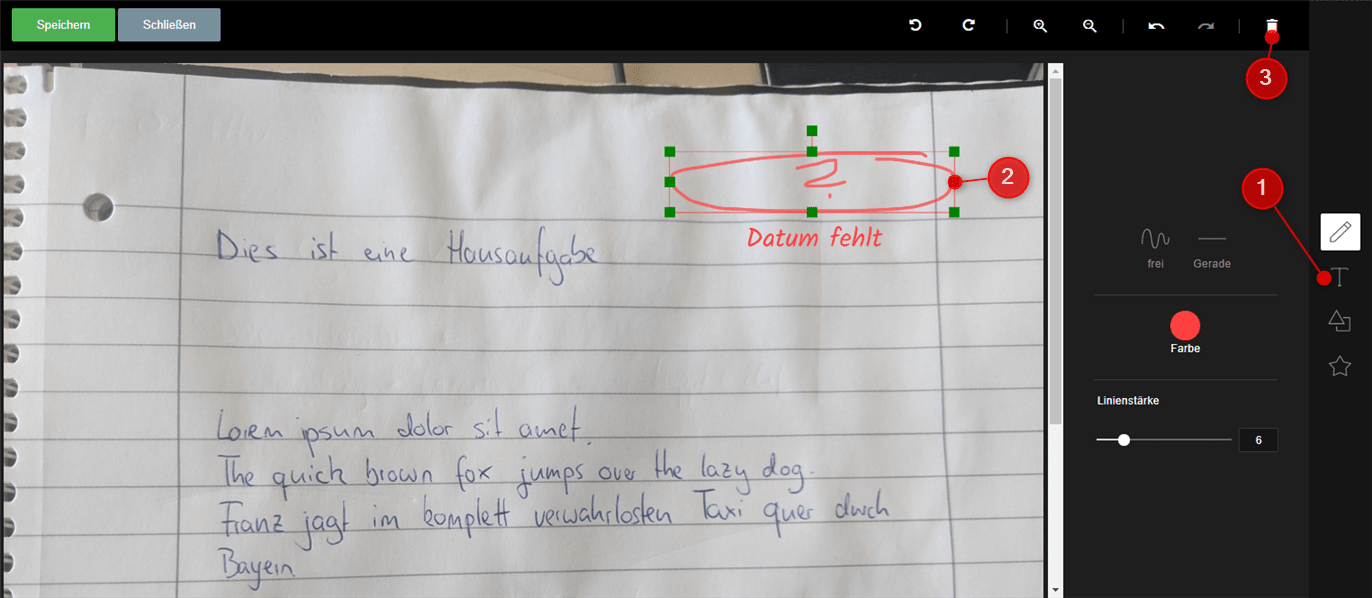 Speichern Schließen
3
?
2
1
Datum fehlt
Dies ist eine Hausaufgabe
frei Gerade
Farbe
Linienstärke
6
Lorem ipsum dolor sit amet.
The quick brown fox jumps over the lazy dog.
Franz jagt im komplett verwahrlosten Taxi quer durch
Bayern